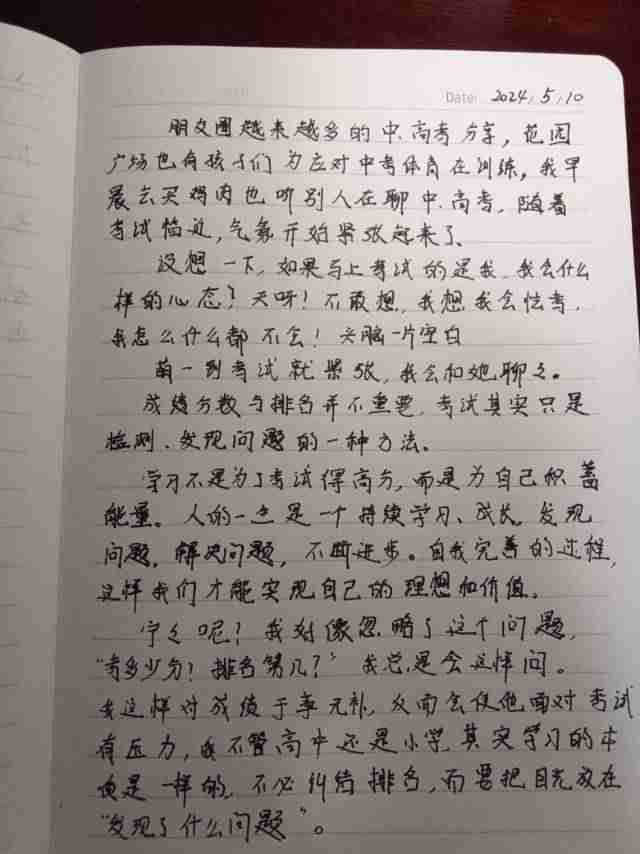 Date: 2024.5.10
朋友圈越来越多的中.高考分享，范围
广场也有孩子们为应对中考体育在训练，我早
晨去买鸡肉也听别人在聊中.高考，随着
考试临近，气氛开始紧张起来了。
设想一下，如果马上考试的是我，我会什么
样的心态？天呀！不敢想，我想我会怯考，
我怎么什么都不会！头脑一片空白
萌一到考试就紧张，我会和她聊聊。
成绩分数与排名并不重要，考试其实只是
检测.发现问题的一种方法。
学习不是为了考试得高分，而是为自己积蓄
能量。人的一生是一个持续学习、成长，发现
问题，解决问题，不断进步。自我完善的过程，
这样我们才能实现自己的理想和价值。
宁宁呢？我好像忽略了这个问题，
“考多少分！排名第几？”我总是会这样问。
我这样对成绩于事无补，反而会使他面对考试
有压力，我不管高中还是小学，其实学习的本
质是一样的，不必纠结排名，而要把目光放在
“发现了什么问题”。